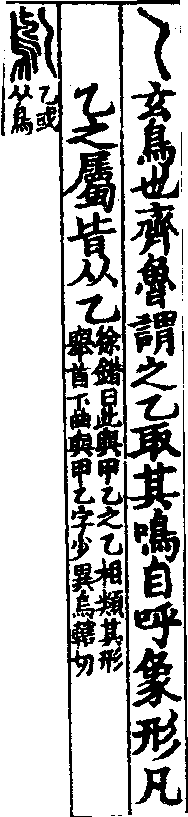 乙玄鳥也齊魯謂之乙取其鳴自呼象形凡
乙之屬皆从乙徐鍇曰此與甲乙之乙相類其形
舉首下曲與甲乙字少異烏轄切
乙或
从鳥